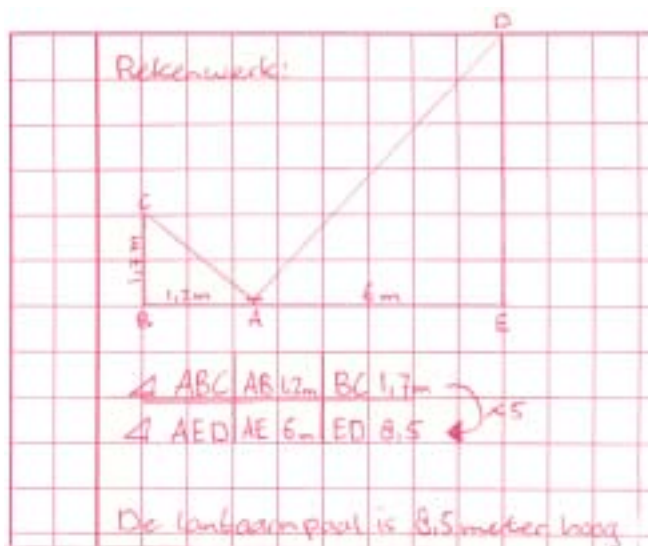 D
Rekenwerk:
C
1,7m
1,2m
6m
B
A
E
△ ABC | AB 1,2m | BC 1,7m
×5
△ AED | AE 6m | ED 8,5
De lantaarnpaal is 8,5 meter hoog